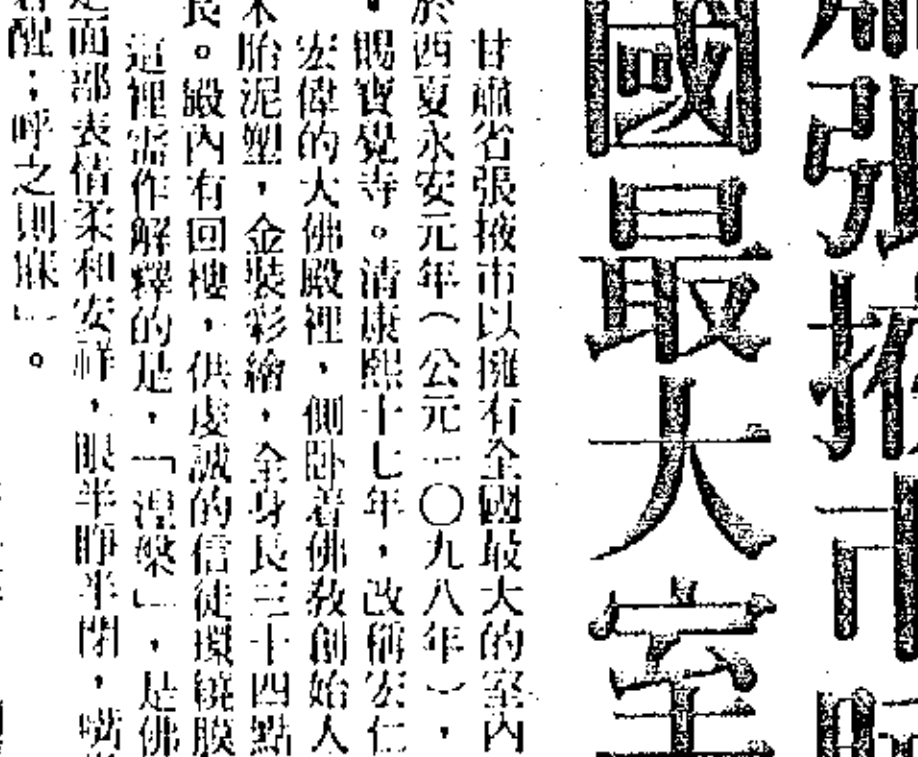 肅張掖市
國最大室
甘肅省張掖市以擁有全國最大的室內
於西夏永安元年（公元一〇九八年），
，賜寶覺寺。清康熙十七年，改稱宏仁
宏偉的大佛殿裡，側卧着佛教創始人
木胎泥塑，金裝彩繪，全身長三十四點
長。殿內有回樓，供虔誠的信徒環繞膜
這裡需作解釋的是，「涅槃」，是佛
是面部表情柔和安祥，眼半睜半閉，嘴
着醒；呼之則寐」。